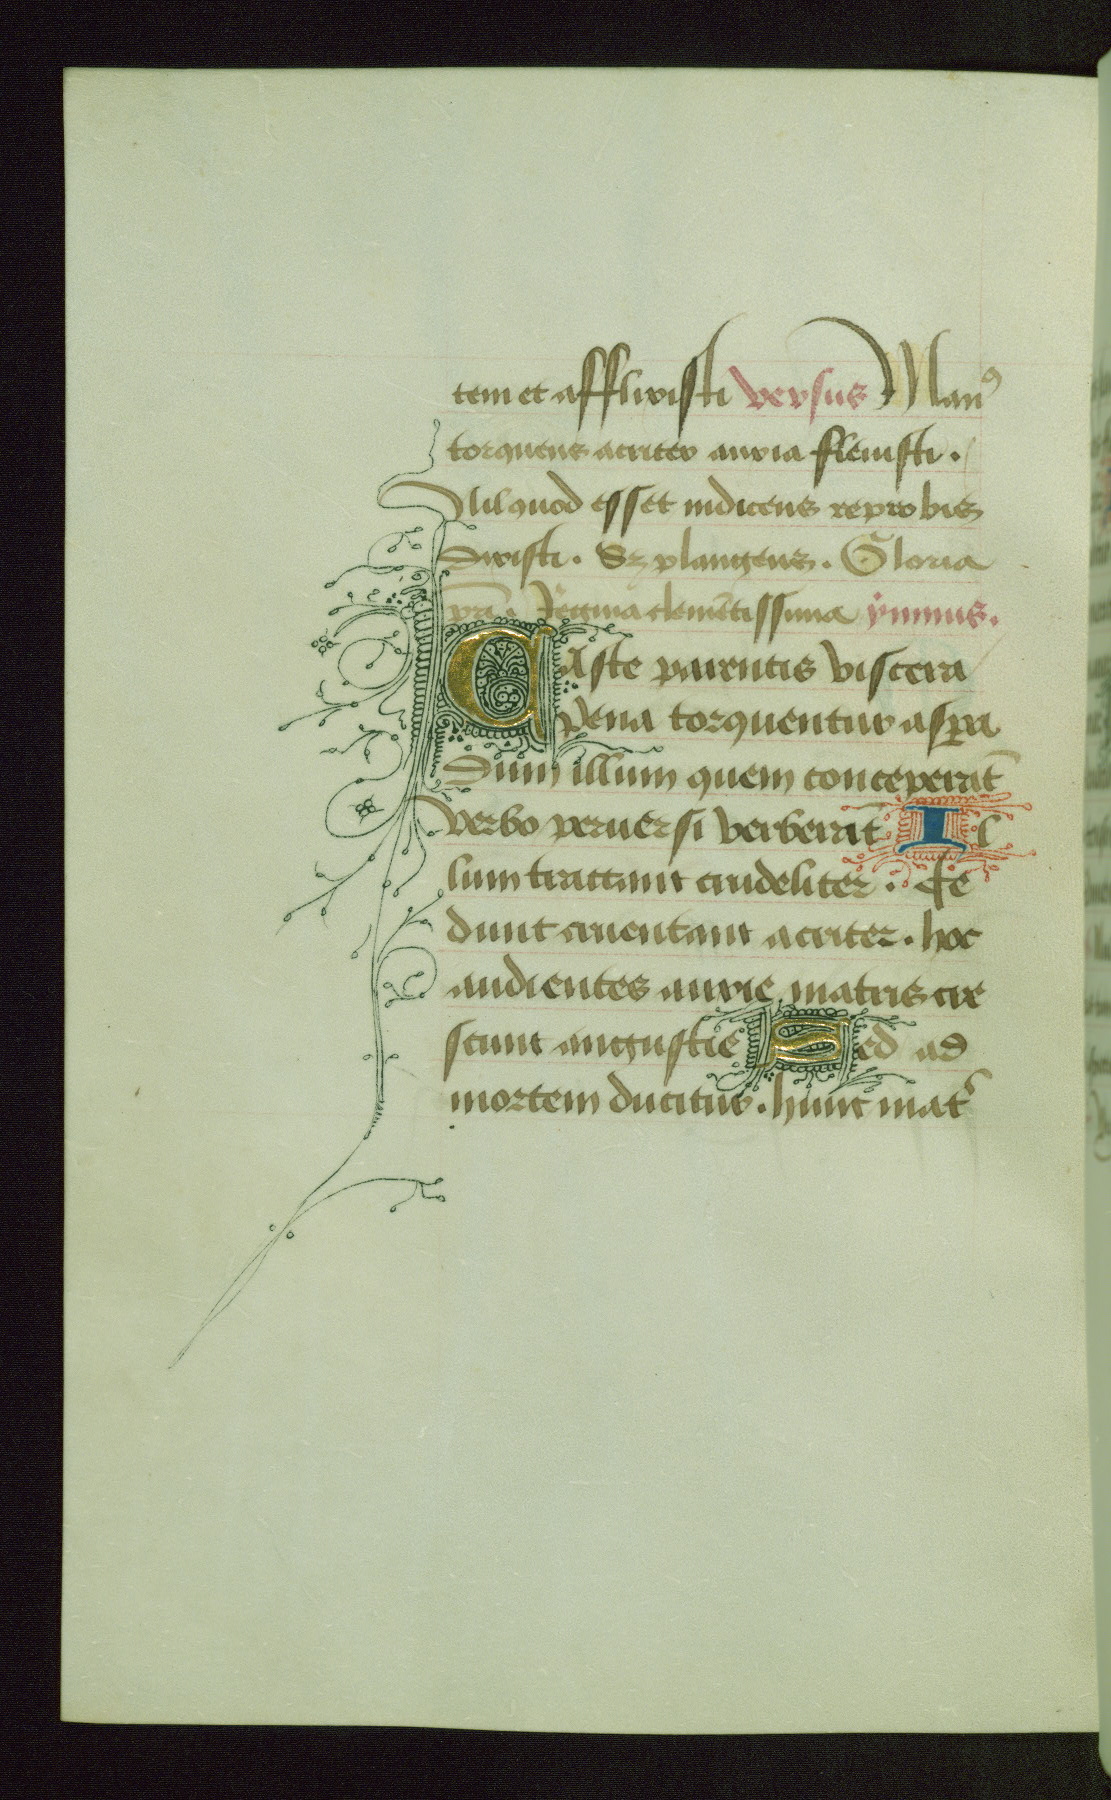 tem et afflixisti versus Man⁹
torquens acriter anxia flevisti.
Nil quod esset indicens reprobis
Dixisti. Sz plangens. Gloria
pr̃i. Regina clemẽtissima ẏmnus.
CAste parentis viscera
pena torquentur asp̲a
Dum illum quem conceperat̃
verbo peruersi verberãt Il
lum tractant crudeliter. Ce
dunt cruentant acriter. hoc
audientes anxie matris cre
scunt angustie Sed ad
mortem ducitur. hunc mat͛